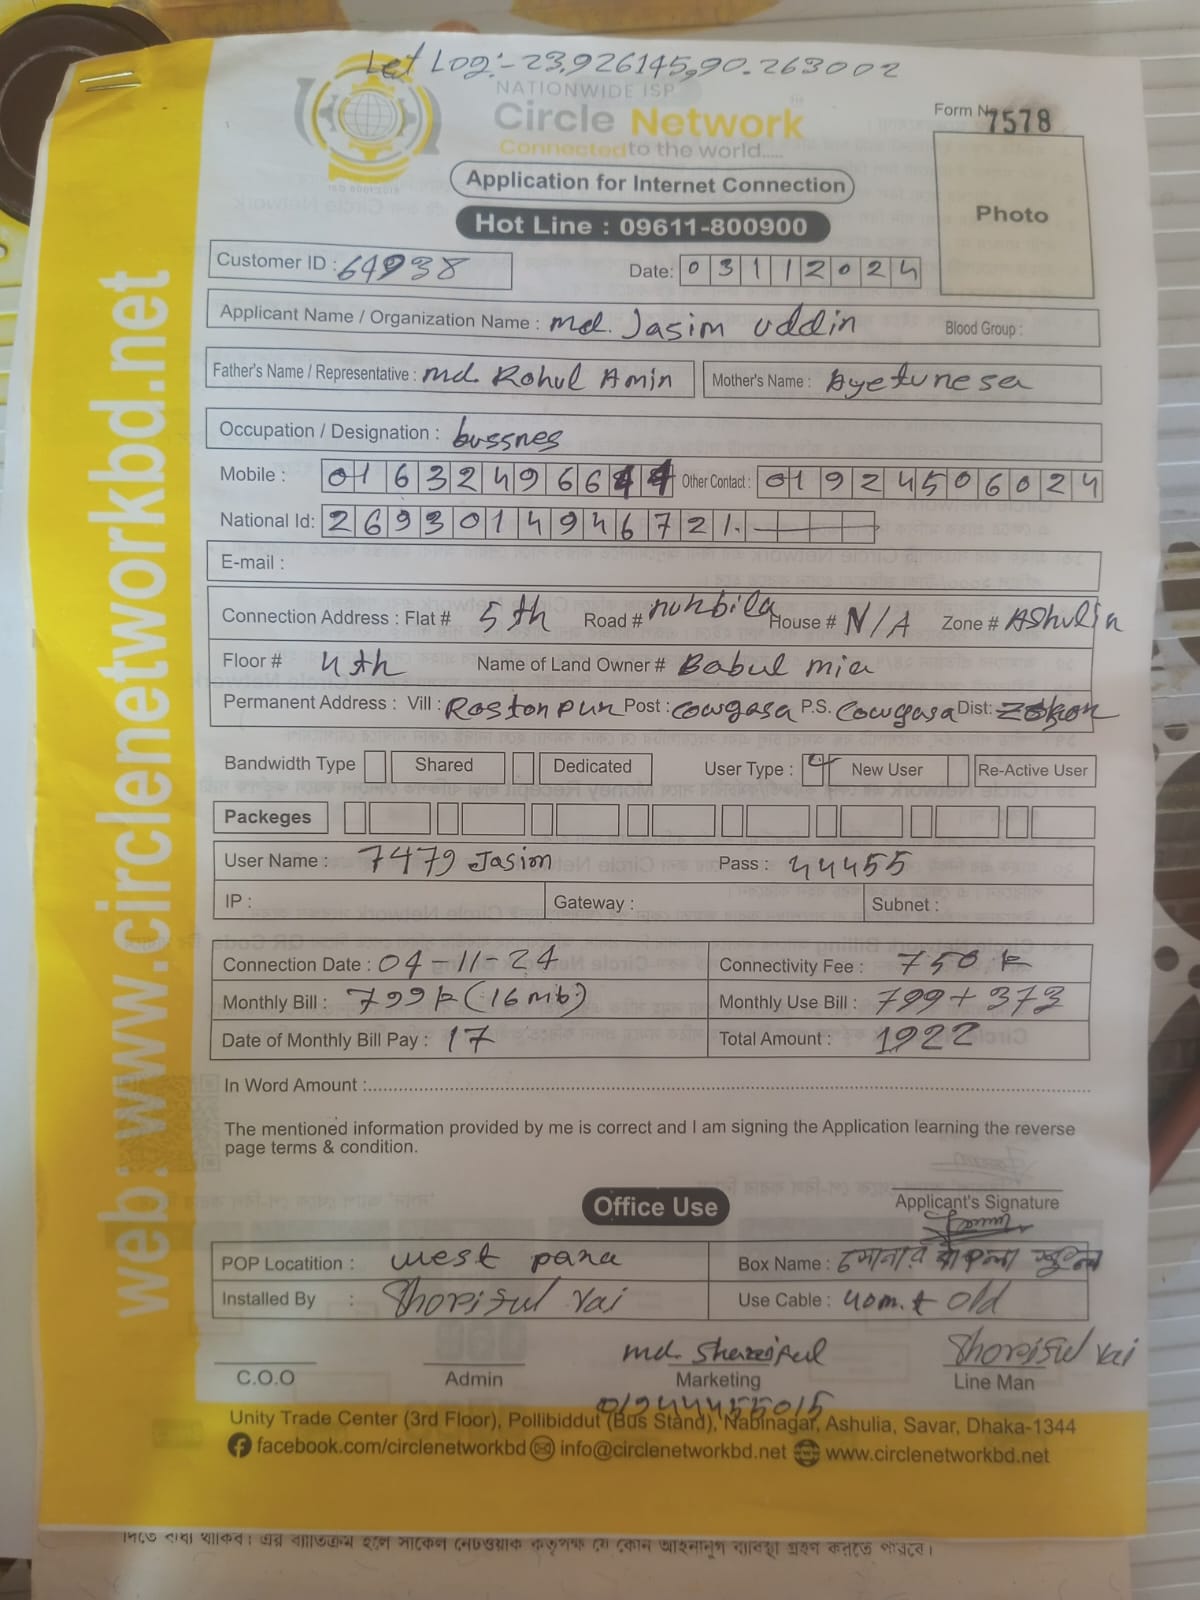 Let Log:- 23.926145,90.263002
NATIONWIDE ISP
Circle Network
Connected to the world.....
Form No 7578
Application for Internet Connection
Photo
Hot Line : 09611-800900
Customer ID : 64938
Date: 03112024
Applicant Name / Organization Name : md. Jasim uddin Blood Group :
Father's Name / Representative : md. Rohul Amin Mother's Name : Ayetunesa
Occupation / Designation : bussnes
Mobile : 01632496644 Other Contact : 01924506024
National Id: 2693014946721.
E-mail :
Connection Address : Flat # 5th Road # nuhbila House # N/A Zone # Ashulia
Floor # 4th Name of Land Owner # Babul mia
Permanent Address : Vill : Rostonpur Post : cowgasa P.S. Cowgasa Dist:
Bandwidth Type Shared Dedicated User Type : New User Re-Active User
Packeges
User Name : 7479 Jasim Pass : 44455
IP : Gateway : Subnet :
Connection Date : 04-11-24 Connectivity Fee : 750 k
Monthly Bill : 799 k (16 mb) Monthly Use Bill : 799 + 373
Date of Monthly Bill Pay : 17 Total Amount : 1922
In Word Amount :
The mentioned information provided by me is correct and I am signing the Application learning the reverse
page terms & condition.
Office Use
Applicant's Signature
POP Locatition : west para Box Name : সোনার বাংলা স্কুল
Installed By : Shoriful Vai Use Cable : 40m. + Old
md. Shoriful Shoriful Vai
C.O.O Admin Marketing Line Man
01944455015
Unity Trade Center (3rd Floor), Pollibiddut (Bus Stand), Nabinagar, Ashulia, Savar, Dhaka-1344
facebook.com/circlenetworkbd info@circlenetworkbd.net www.circlenetworkbd.net
web: www.circlenetworkbd.net
দিতে বাধ্য থাকিব। এর ব্যতিক্রম হলে সার্কেল নেটওয়ার্ক কতৃপক্ষ যে কোন আইনানুগ ব্যাবস্থা গ্রহণ করতে পারবে।